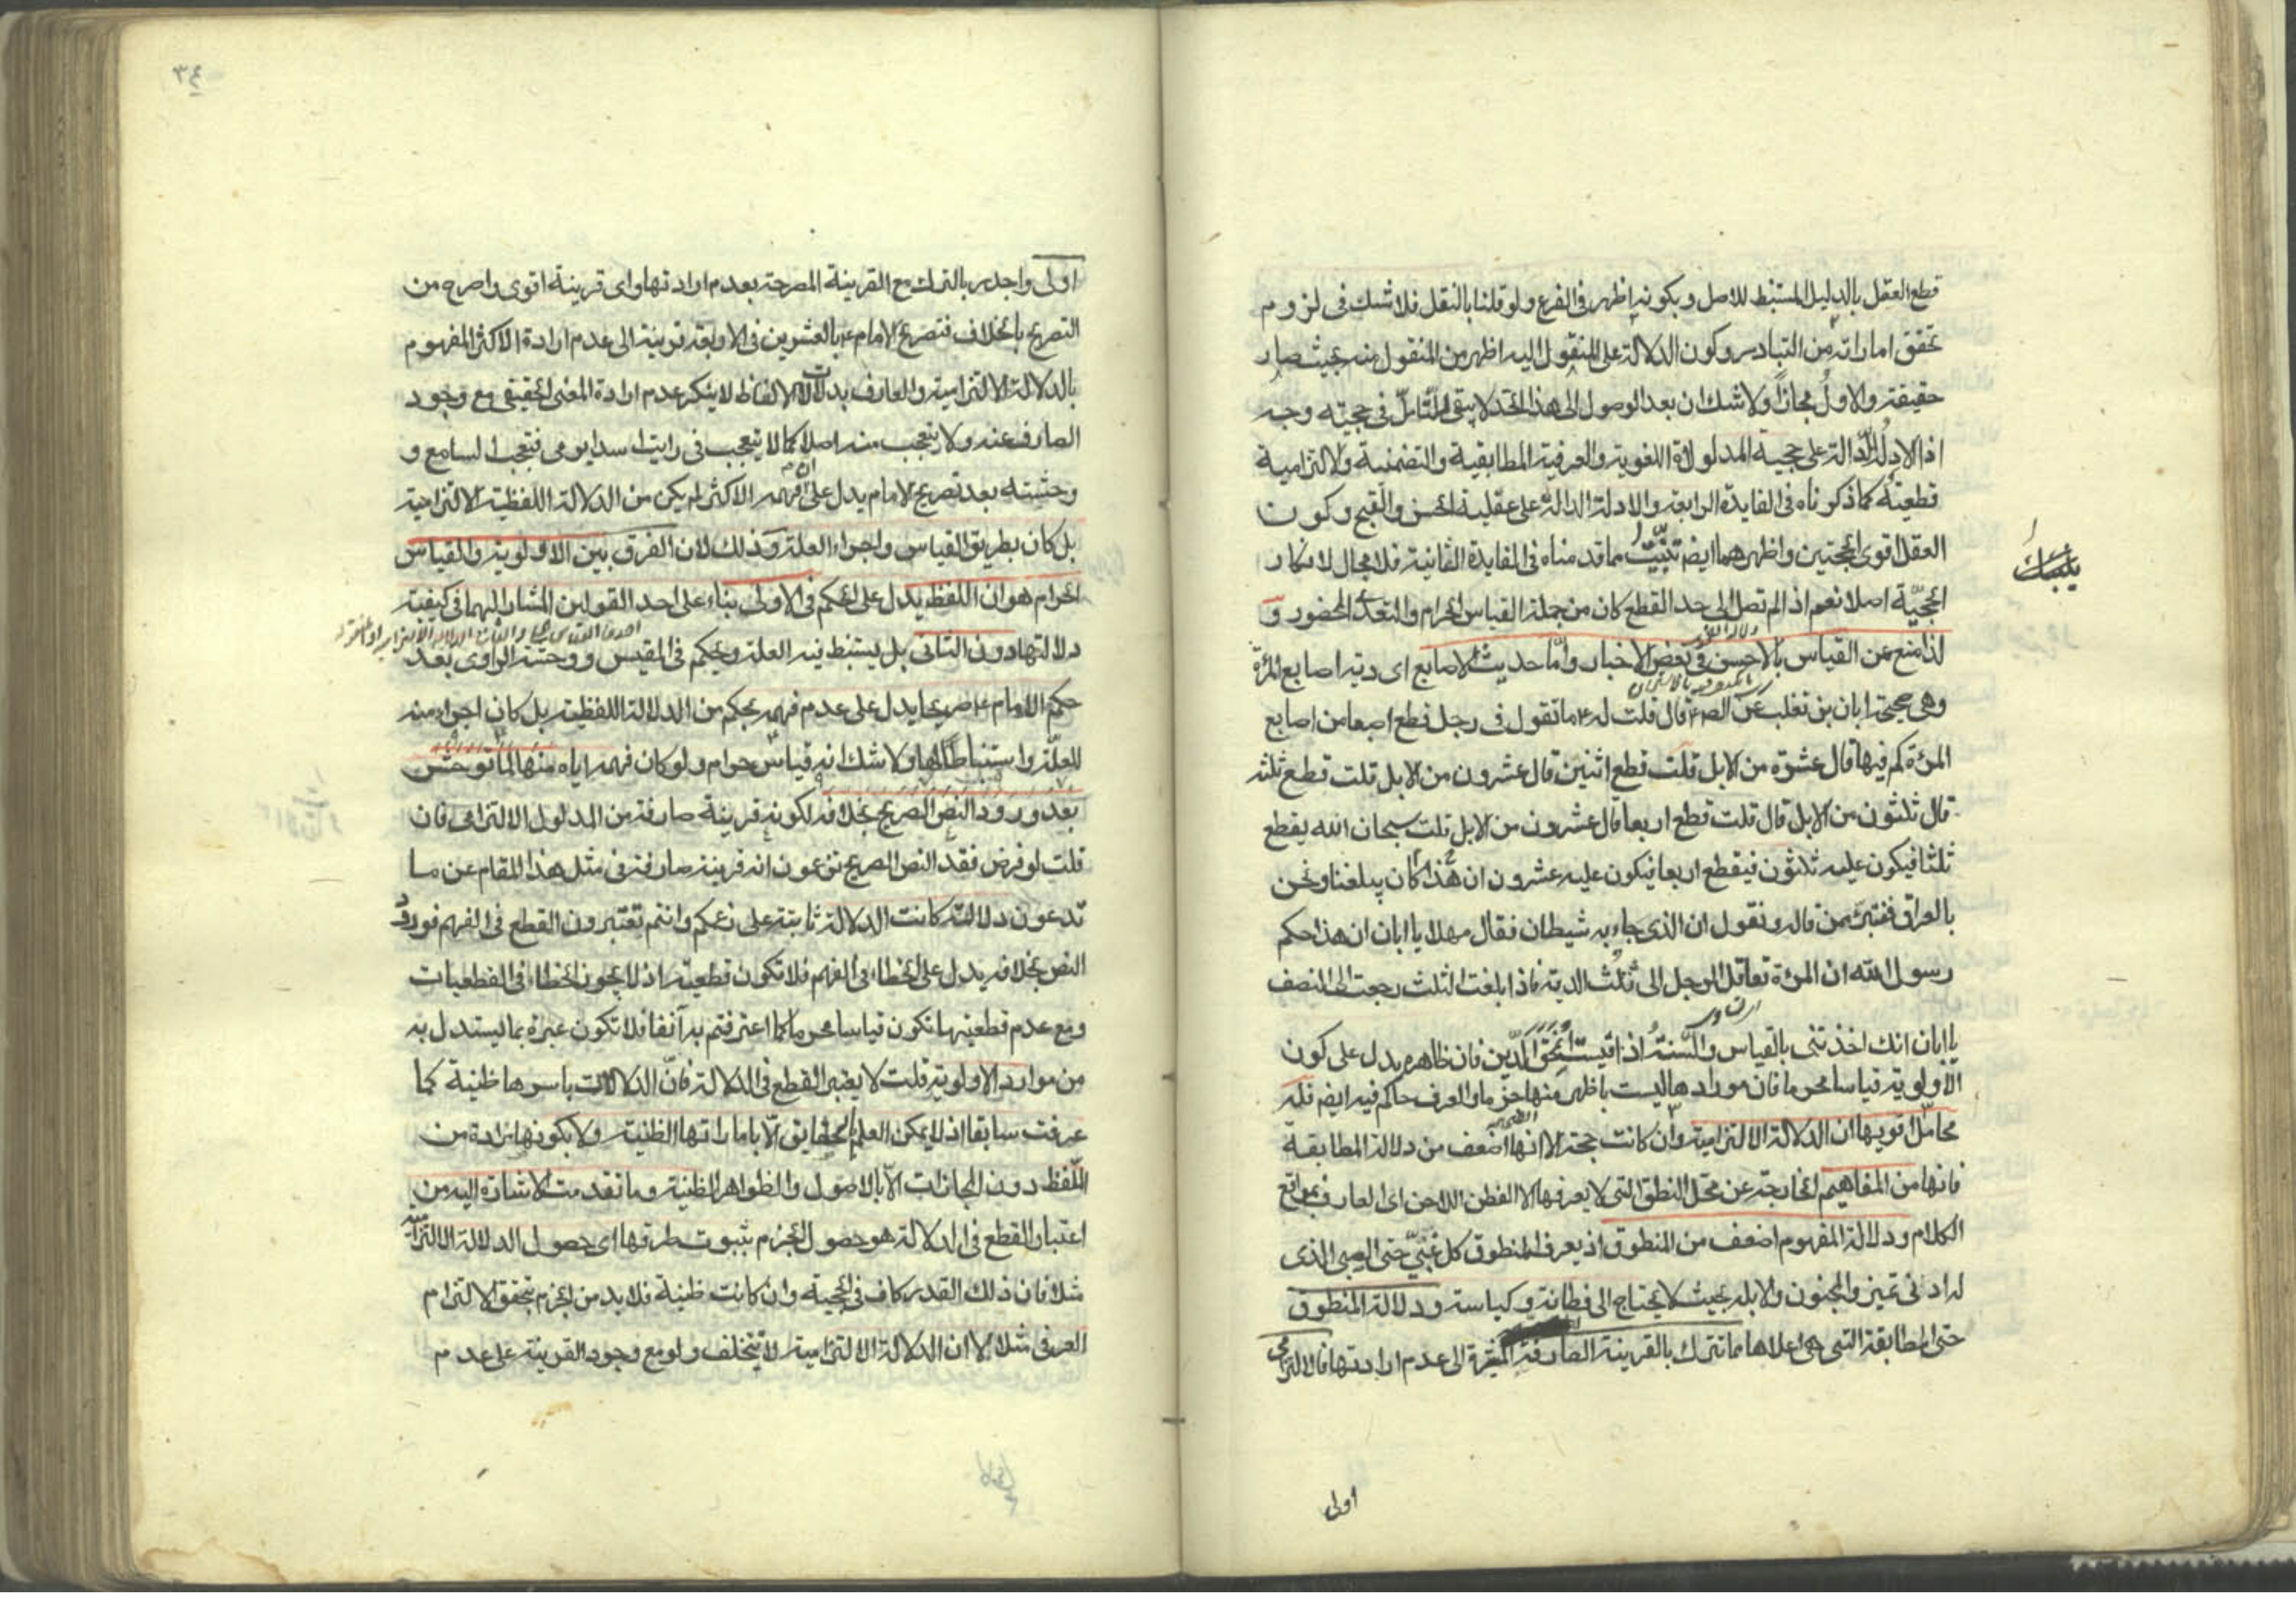 قطع العقل بالدليل المستنبط للاصل وبكونه اظهر فى الفرع ولو قلنا بالنقل فلا شك فى لزوم
تحقق اماراته من التبادر وكون الدلالة على المنقول اليه اظهر من المنقول منه بحيث صار
حقيقة والاول مجازا ولا شك ان بعد الوصول الى هذا الحد لا يبقى للتامل فى حجيته وجه
اذ الادلة الدالة على حجية المدلولات اللغوية والعرفية المطابقية والتضمنية والالتزامية
قطعية كما ذكرناه فى الفايدة الرابعة والادلة الدالة على عقلية الحسن والقبح وكون
العقل اقوى الحجتين واظهرهما ايضم تثبت مما قدمناه فى الفايدة الثانية فلا مجال لانكار
الحجية اصلا نعم اذا لم تصل الى حد القطع كان من جملة القياس الحرام والتعدى المحضور و
لذا منع عن القياس بالاحسن فى بعض الاخبار واما حديث الاصابع اى دية اصابع المرئة
وهى صحيحة ابان بن تغلب عن الصم ع قال قلت له ع ما تقول فى رجل قطع اصبعا من اصابع
المرئة كم فيها قال عشرة من الابل قلت قطع اثنين قال عشرون من الابل قلت قطع ثلثة
قال ثلثون من الابل قال قلت قطع اربعا قال عشرون من الابل قلت سبحان الله يقطع
ثلثا فيكون عليه ثلاثون فيقطع اربعا فيكون عليه عشرون ان هذا كان يبلغنا ونحن
بالعراق فنتبرئ ممن قاله ونقول ان الذى جاء به شيطان فقال مهلا يا ابان ان هذا حكم
رسول الله ان المرئة تعاقل الرجل الى ثلث الدية فاذا بلغت الثلث رجعت الى النصف
يا ابان انك اخذتنى بالقياس والسنة اذا قيست انمحق الدين فان ظاهره يدل على كون
الاولوية قياسا محرما فان مواردها ليست باظهر منها جزما والعرف حاكم فيه ايضم فله
محامل اقويها ان الدلالة الالتزامية وان كانت حجة الا انها اضعف من دلالة المطابقة
فانها من المفاهيم الخارجة عن محل النطق التى لا يعرفها الا الفطن اللاحن اى العارف بمواقع
الكلام ودلالة المفهوم اضعف من المنطوق اذ يعرف المنطوق كل غبى حتى الصبى الذى
له ادنى تميز والمجنون والابله بحيث لا يحتاج الى فطانة وكياسة ودلالة المنطوق
حتى المطابقة التى هى اعلاها مما تترك بالقرينة الصارفة الى عدم ارادتها فالالتزامى
اولى
٣٤
اولى واجدر بالترك مع القرينة المصرحة بعدم ارادتها واى قرينة اقوى واصرح من
التصريح بالخلاف فتصريح الامام ع بالعشرين فى الاربعة قرينة الى عدم ارادة الاكثر المفهوم
بالدلالة الالتزامية والعارف بدلالات الالفاظ لا ينكر عدم ارادة المعنى الحقيقى مع وجود
الصارف عنه ولا يتعجب منه اصلا كما لا يتعجب فى رايت اسدا يرمى فتعجب السامع و
وحشته بعد تصريح الامام يدل على ان فهمه الاكثر لم يكن من الدلالة اللفظية الالتزامية
بل كان بطريق القياس واجراء العلة وذلك لان الفرق بين الاولوية والقياس
الحرام هو ان اللفظ يدل على الحكم فى الاولى بناء على احد القولين المشار اليهما فى كيفية
دلالتها دون الثانى بل يستنبط فيه العلة ويحكم فى المقيس ووحشة الراوى بعد
حكم الامام ع صريحا يدل على عدم فهمه بحكم من الدلالة اللفظية بل كان اجراء منه
للعلة واستنباطا لها ولا شك انه قياس حرام ولو كان فهمه اياه منها لما توحش
بعد ورود النص الصريح بخلافه لكونه قرينة صارفة من المدلول الالتزامى فان
قلت لو فرض فقد النص الصريح تزعمون انه قرينة صارفة فى مثل هذا المقام عن ما
تدعون دلالته كانت الدلالة ثابتة على زعمكم وانتم تعتبرون القطع فى الفهم فورود
النص بخلافه يدل على الخطاء فى الفهم فلا تكون قطعية اذ لا يجوز الخطاء فى القطعيات
ومع عدم قطعيتها تكون قياسا محرما كما اعترفتم به آنفا فلا تكون عبرة بما يستدل به
من موارد الاولوية قلت لا يضر القطع فى الدلالة فان الدلالات باسرها ظنية كما
عرفت سابقا اذ لا يمكن العلم بالحقايق الا باماراتها الظنية ولا بكونها مرادة من
اللفظ دون المجازات الا بالاصول والظواهر الظنية وما تقدمت الاشارة اليه من
اعتبار القطع فى الدلالة هو حصول الجزم بثبوت طرقها اى حصول الدلالة الالتزامية
مثلا فان ذلك القدر كاف فى الحجية وان كانت ظنية فلا بد من الجزم بتحقق الالتزام
العرفى مثلا الا ان الدلالة الالتزامية لا تتخلف ولو مع وجود القرينة على عدم